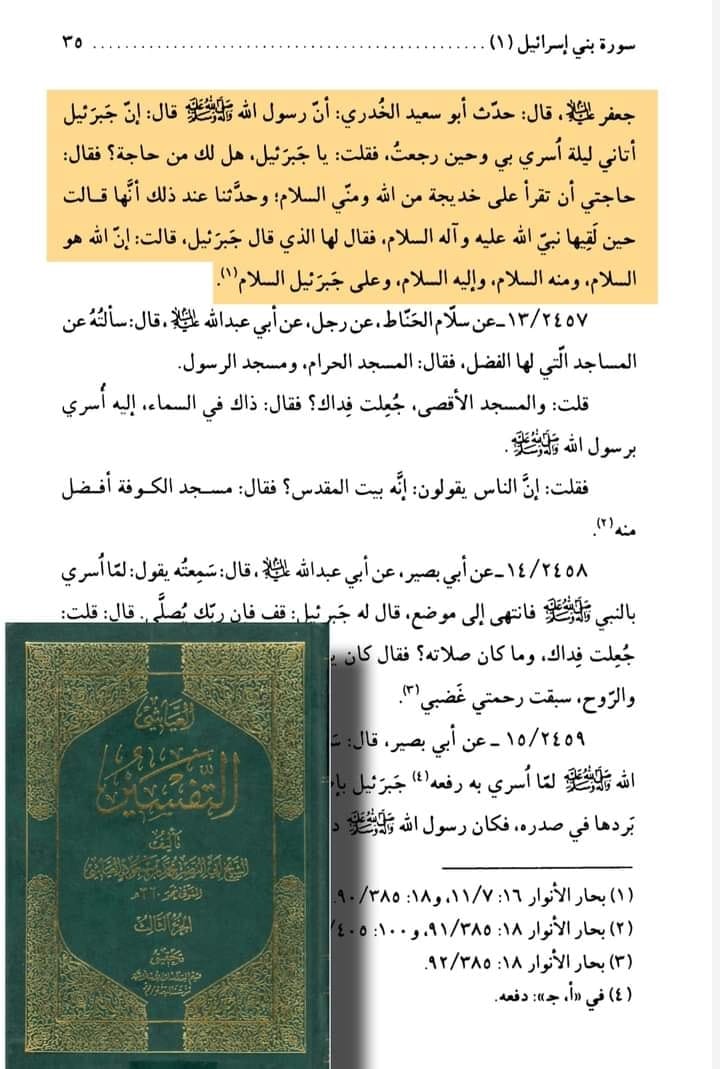 سورة بني إسرائيل (١) ........................................ ٣٥
جعفر عليه السلام، قال: حدّث أبو سعيد الخُدري: أنّ رسول الله صلى الله عليه وآله وسلم قال: إنّ جَبرَئيل
أتاني ليلة أُسري بي وحين رجعتُ، فقلت: يا جَبرَئيل، هل لك من حاجة؟ فقال:
حاجتي أن تقرأ على خديجة من الله ومنّي السلام؛ وحدَّثنا عند ذلك أنَّها قـالت
حين لَقِيها نبيّ الله عليه وآله السلام، فقال لها الذي قال جَبرَئيل، قالت: إنّ الله هو
السلام، ومنه السلام، وإليه السلام، وعلى جَبرَئيل السلام(١).
١٣/٢٤٥٧ ـ عن سلّام الحَنّاط، عن رجل، عن أبي عبدالله عليه السلام، قال: سألتُهُ عن
المساجد الّتي لها الفضل، فقال: المسجد الحرام، ومسجد الرسول.
قلت: والمسجد الأقصى، جُعِلت فِداك؟ فقال: ذاك في السماء، إليه أُسري
برسول الله صلى الله عليه وآله وسلم.
فقلت: إنَّ الناس يقولون: إنَّه بيت المقدس؟ فقال: مسـجد الكـوفة أفـضل
منه(٢).
١٤/٢٤٥٨ ـ عن أبي بصير، عن أبي عبدالله عليه السلام، قال: سَمِعتُه يقول: لمّا أُسري
بالنبي صلى الله عليه وآله وسلم فانتهى إلى موضع، قال له جَبرئيل: قف فإن ربّك يُصلّي. قال: قلت:
جُعلت فِداك، وما كان صلاته؟ فقال كان
والرّوح، سبقت رحمتي غَضبي(٣).
١٥/٢٤٥٩ ـ عن أبي بصير، قال:
الله صلى الله عليه وآله وسلم لمّا أُسري به رفعه(٤) جَبرَئيل
بَردها في صدره، فكان رسول الله صلى الله عليه وآله وسلم
(١) بحار الأنوار ١٦: ١١/٧، و١٨: ٩٠/٣٨٥.
(٢) بحار الأنوار ١٨: ٩١/٣٨٥، و١٠٠: ٤٠٥/
(٣) بحار الأنوار ١٨: ٩٢/٣٨٥.
(٤) في «أ، ج»: دفعه.
العيّاشي
التفسير
تأليف
المتوفى نحو ٣٢٠ هـ
الجزء الثالث
تحقيق